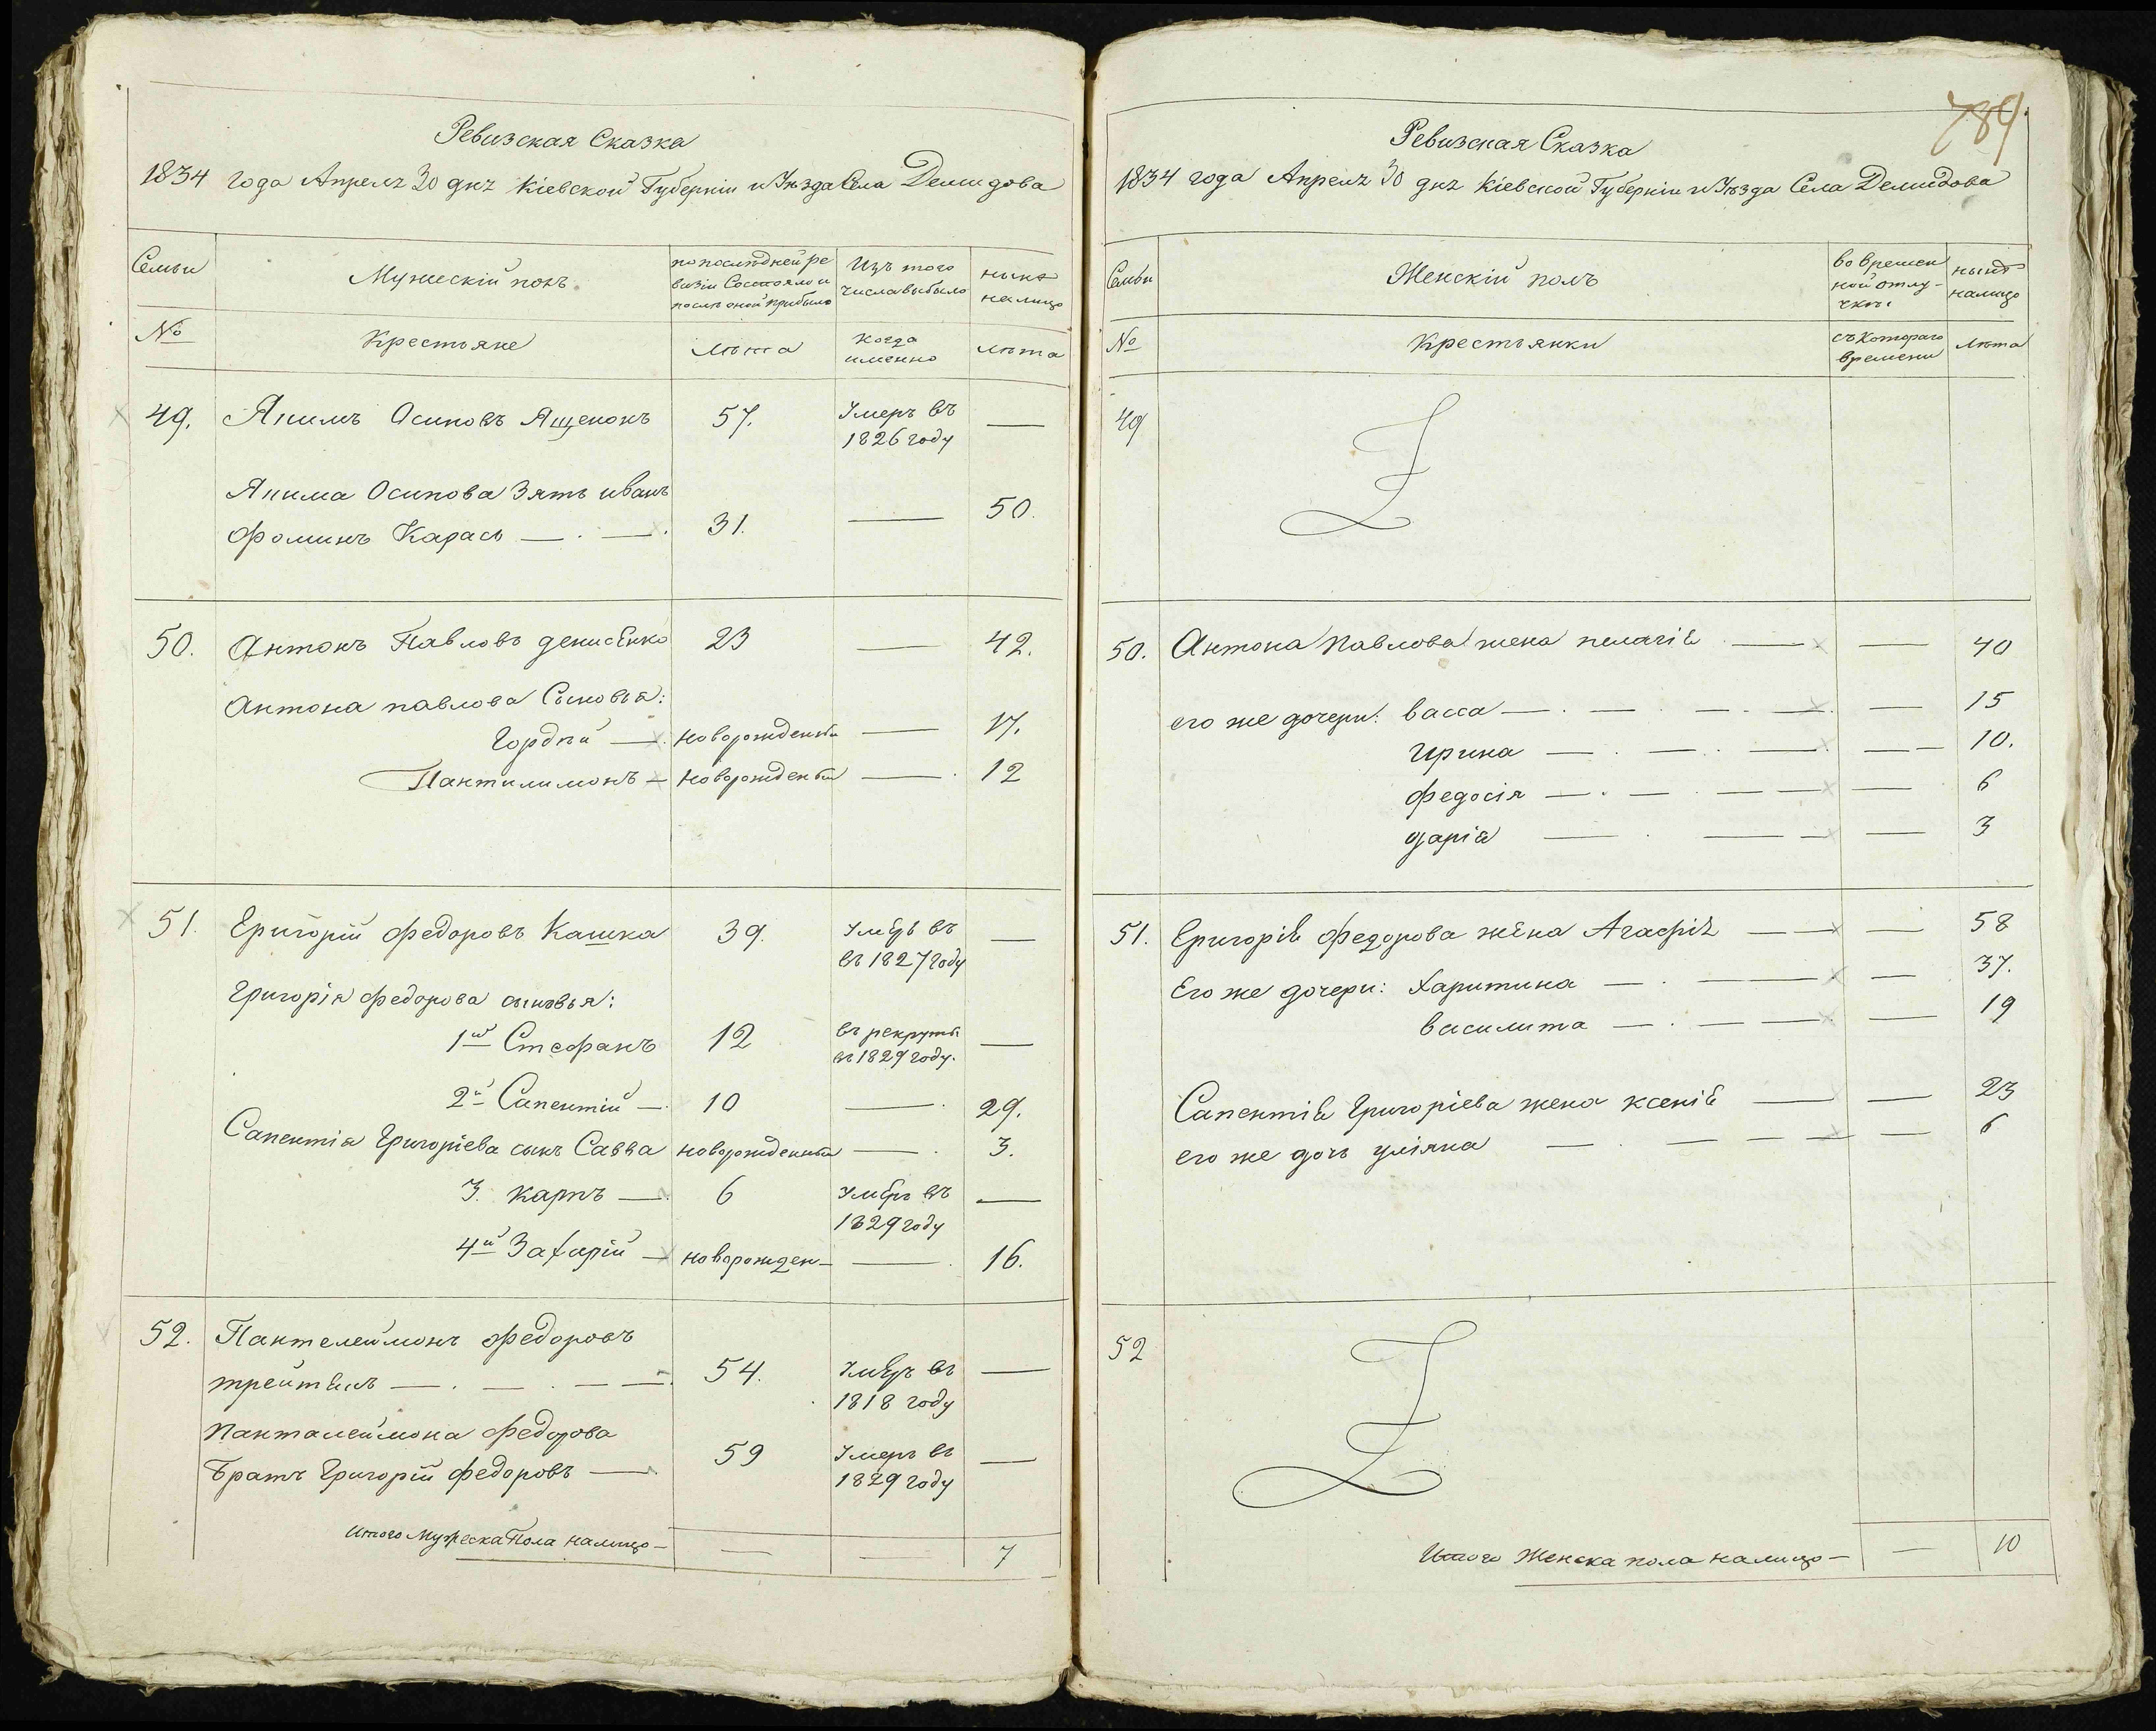 Ревизская Сказка
1834 года Апреля 30 дня Кіевской Губерніи и Уѣзда Села Демидова
Семьи
Мужескій полъ
по последней ре
визіи Состояло и
после оной прибыло
Изъ того
числа выбыло
нынѣ
налицо
№
Крестьяне
лѣта
когда
именно
лѣта
49. Якимъ Осиповъ Ященокъ 57. Умеръ въ —
1826 году
Якима Осипова Зять иванъ
Фоминъ Карась — . — . 31. — 50.
50. Антонъ Павловъ денисенко 23 — 42.
Антона павлова Сыновья:
Гордѣй — новорожденный — 17.
Пантилимонъ — новорожденый — 12
51. Григорій Федоровъ Кашка 39. Умеръ въ —
въ 1827 году
Григорія Федорова сыновья:
1й Стефанъ 12 въ рекруты —
въ 1829 году.
2й Сапентій — 10 — 29.
Сапентія Григоріева сынъ Савва новорожденный — 3.
3. карпъ — 6 Умеръ въ —
1829 году
4й Захарій — новорожден- — 16.
52. Пантелеймонъ Федоровъ
54. Умеръ въ —
1818 году
Панталеймона Федорова
Братъ Григорій Федоровъ — 59 Умеръ въ —
1829 году
Итого Мужеска Пола налицо — — — 7
784
Ревизская Сказка
1834 года Апреля 30 дня Кіевской Губерніи и Уѣзда Села Демидова
Семьи
Женскій полъ
во времен
ной отлу-
чкѣ
нынѣ
налицо
№
Крестьянки
съ котораго
времени
лѣта
49
50. Антона Павлова жена пелагія — — 40
его же дочери: васса — . — . — . — — 15
Ирина — . — . — — 10.
Федосія — . — . — — — 6
дарія — . — — — 3
51. Григорія Федорова жена Агафія — — — 58
Его же дочери: Харитина — . — — 37.
василита — . — — — 19
Сапентія Григоріева жена ксенія — — 23
его же дочь уліяна — . — — — — 6
52
Итого Женска пола налицо — — 10